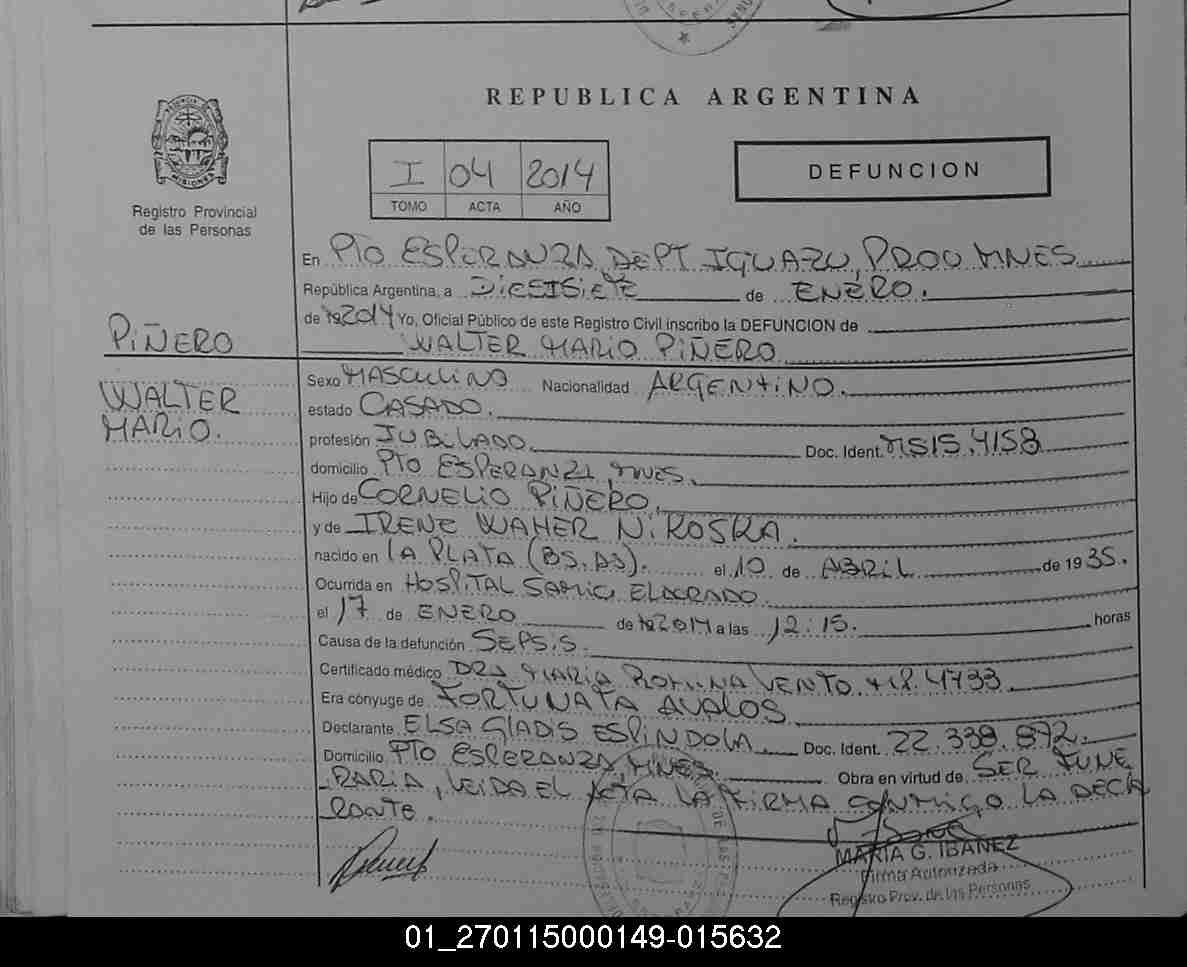 REPUBLICA ARGENTINA
PROVINCIA DE
MISIONES
Registro Provincial
de las Personas
I 04 2014
TOMO ACTA AÑO
DEFUNCION
En PTO ESPERANZA, DEPT IGUAZU, PROV MNES
República Argentina, a DIESISIETE de ENERO.
de 192014 Yo, Oficial Público de este Registro Civil inscribo la DEFUNCION de
PIÑERO
WALTER MARIO PIÑERO
WALTER
MARIO.
Sexo MASCULINO Nacionalidad ARGENTINO.
estado CASADO.
profesión JUBILADO. Doc. Ident. 4158
domicilio PTO ESPERANZA, MNES.
Hijo de CORNELIO PIÑERO,
y de IRENE WAHER NIKOSKA.
nacido en LA PLATA (BS.AS). el 10 de ABRIL de 1935.
Ocurrida en HOSPITAL SAMIC ELDORADO
el 17 de ENERO de 192014 a las 12:15. horas
Causa de la defunción SEPSIS.
Certificado médico DRA MARIA ROMINA VENTO 4733
Era cónyuge de FORTUNATA AVALOS
Declarante ELSA GLADIS ESPINDOLA. Doc. Ident. 22.338.872.
Domicilio PTO ESPERANZA, MNES. Obra en virtud de SER FUNE
RARIA, LEIDA EL ACTA LA FIRMA CONMIGO LA DECLA
RANTE.
MARIA G. IBAÑEZ
Firma Autorizada
Registro Prov. de las Personas
01_270115000149-015632